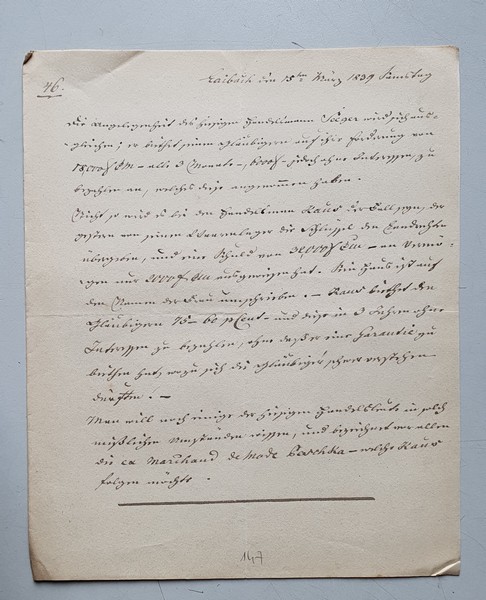 46.
Laibach den 15ten März 1839 Samstag
Die Angelegenheit des hiesigen Handelsmann Seeger wird sich aus-
gleichen; er biethet seinen Gläubigern auf ihre Forderung von
18,000 f CM – alle 3 Monate –, 6000 f – jedoch ohne Interessen, zu
bezahlen an, welches diese angenommen haben.
Nicht so wird es bei dem Handelsman Kaus der Fall seyn, der
gestern von seinem Waarenlager die Schlüssel dem Landrechte
übergeben, und eine Schuld von 30,000 f CM – an Vermö-
gen nur 2000 f CM ausgewiesen hat. Ein Haus ist auf
den Namen der Frau umschrieben. – Kaus biethet den
Gläubigern 75– 60 pCent – und diese in 3 Jahren ohne
Interessen zu bezahlen, ohne daß er eine Garantie zu
biethen hat, wozu sich die Gläubiger schwer verstehen
dürften. –
Man will noch einige der hiesigen Handelsleute in solch
mißlichen Umständen wissen, und bezeichnet vor allen
die ex Marchand de Mode – welche Kaus
folgen möchte.
147